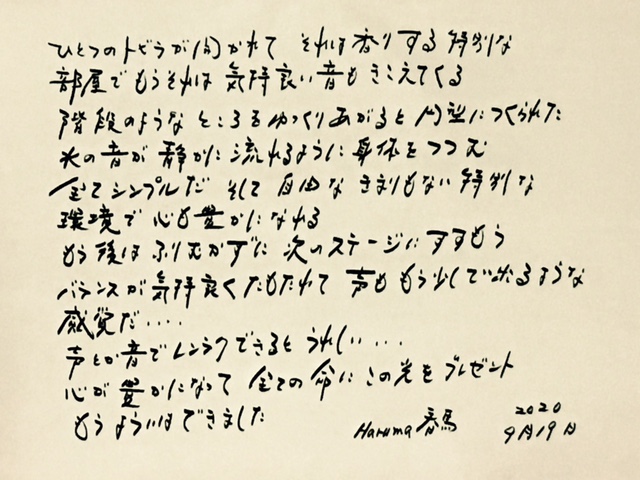 ひとつのトビラが開かれて それは香りする特別な
部屋でもうそれは 気持良い音もきこえてくる
階段のようなところをゆっくりあがると 円型につくられた
水の音が静かに流れるように身体をつつむ
全てシンプルだ そして自由なきまりもない特別な
環境で心も豊かになれる
もう後はふりむかずに 次のステージにすすもう
バランスが気持良くたもたれて 声ももう少しで出るような
感覚だ・・・・
声とか音でレンラクできるとうれしい・・・
心が豊かになって 全ての命にこの光をプレゼント
もうよういはできました
Haruma 春馬 2020
9月19日